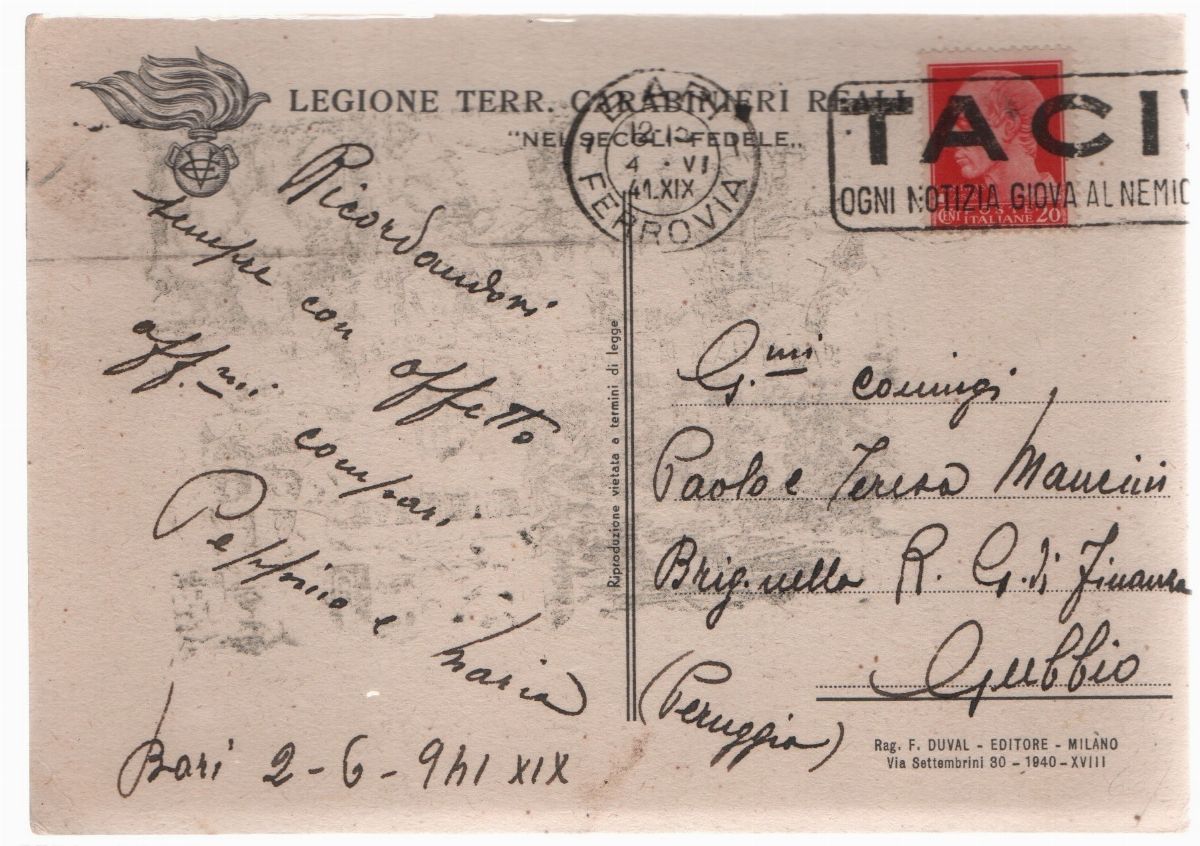 LEGIONE TERR. CARABINIERI REALI
"NEI SECOLI FEDELE„
BARI
12-13
4 · VI
41.XIX
FERROVIA
TACI
OGNI NOTIZIA GIOVA AL NEMIC
POSTE
CENT ITALIANE 20
Ricordandovi
sempre con affetto
aff.mi compari
Peppino e Maria
Bari 2-6-941 XIX
Riproduzione vietata a termini di legge
G.mi coniugi
Paolo e Teresa Mancini
Brig. nella R. G. di Finanza
Gubbio
(Peruggia)
Rag. F. DUVAL - EDITORE - MILANO
Via Settembrini 30 - 1940 - XVIII